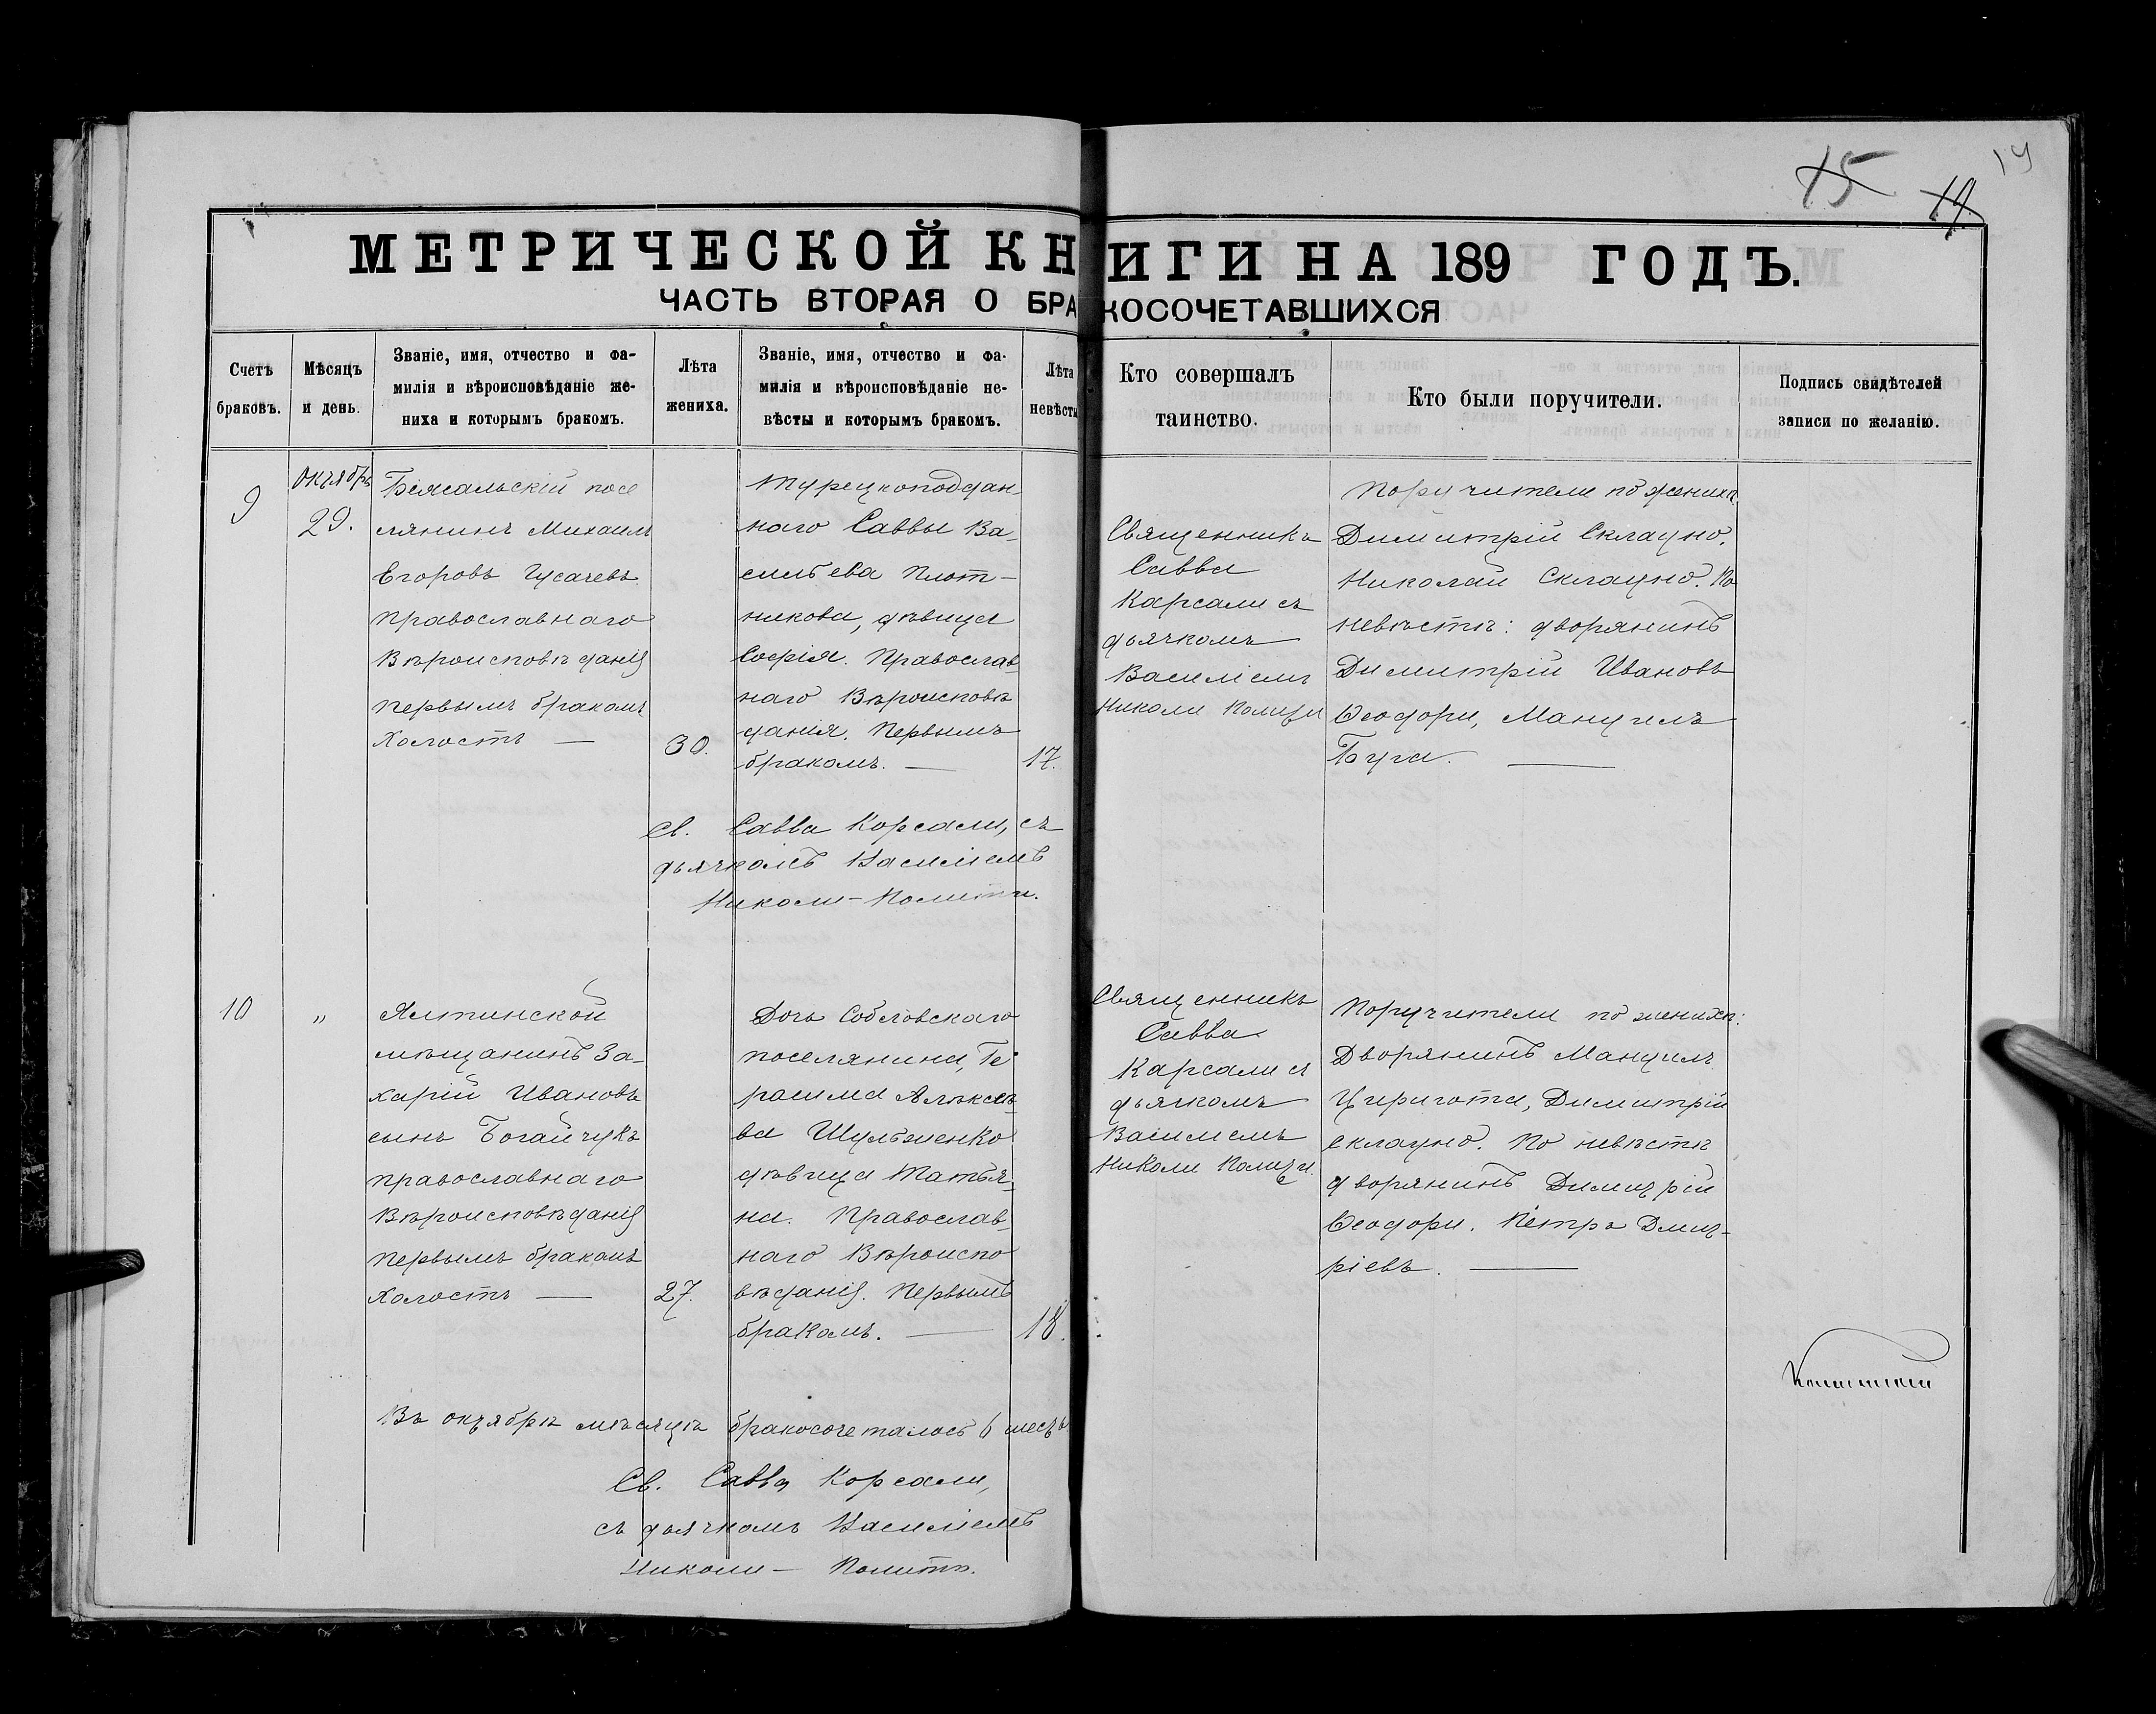 15 19 14
МЕТРИЧЕСКОЙ КНИГИ НА 189 ГОДЪ.
ЧАСТЬ ВТОРАЯ О БРАКОСОЧЕТАВШИХСЯ
Счетъ
браковъ.
Мѣсяцъ
и день.
Званіе, имя, отчество и фа-
милія и вѣроисповѣданіе же-
ниха и которымъ бракомъ.
Лѣта
жениха.
Званіе, имя, отчество и фа-
милія и вѣроисповѣданіе не-
вѣсты и которымъ бракомъ.
Лѣта
невѣсты
Кто совершалъ
таинство.
Кто были поручители.
Подпись свидѣтелей
записи по желанію.
9
Октябрь
29.
Біясальскій посе
лянинъ Михаилъ
Егоровъ Гусачевъ
православнаго
Вѣроисповѣданія
первымъ бракомъ
Холостъ —
30.
Турецкоподдан-
наго Саввы Ва-
сильева Плот-
никова, дѣвица
Софія. Православ-
наго Вѣроисповѣ
данія. Первымъ
бракомъ. —
17.
Священникъ
Савва
Карсали съ
дьячкомъ
Василіемъ
Николи Полити
Поручители по женихѣ
Димитрій Склауно.
Николай Склауно. По
невѣстѣ: дворянинъ
Димитрій Ивановъ
Ѳеодори, Мануилъ
Буга. —
Св. Савва Корсали, съ
дьячкомъ Василіемъ
Николи-Полити.
10
„
Ялтинской
мѣщанинъ За-
харій Ивановъ
сынъ Богайчукъ
православнаго
Вѣроисповѣданія
первымъ бракомъ
Холостъ —
27.
Дочь Собловскаго
поселянина, Ге
расима Алексѣ-
ва Шульженко
дѣвица Татья-
на. Православ-
наго Вѣроиспо
вѣданія. Первымъ
бракомъ. —
18.
Священникъ
Савва
Карсали съ
дьячкомъ
Василіемъ
Николи Полити.
Поручители по женихѣ:
Дворянинъ Мануилъ
Цириготи, Димитрій
Склауно. По невѣстѣ
дворянинъ Димитрій
Ѳеодори. Петръ Дмит-
ріевъ. —
Въ октябрѣ мѣсяцѣ бракосочеталось 6 шесть
Св. Савва Корсали,
съ дьячкомъ Василіемъ
Николи - Полити.